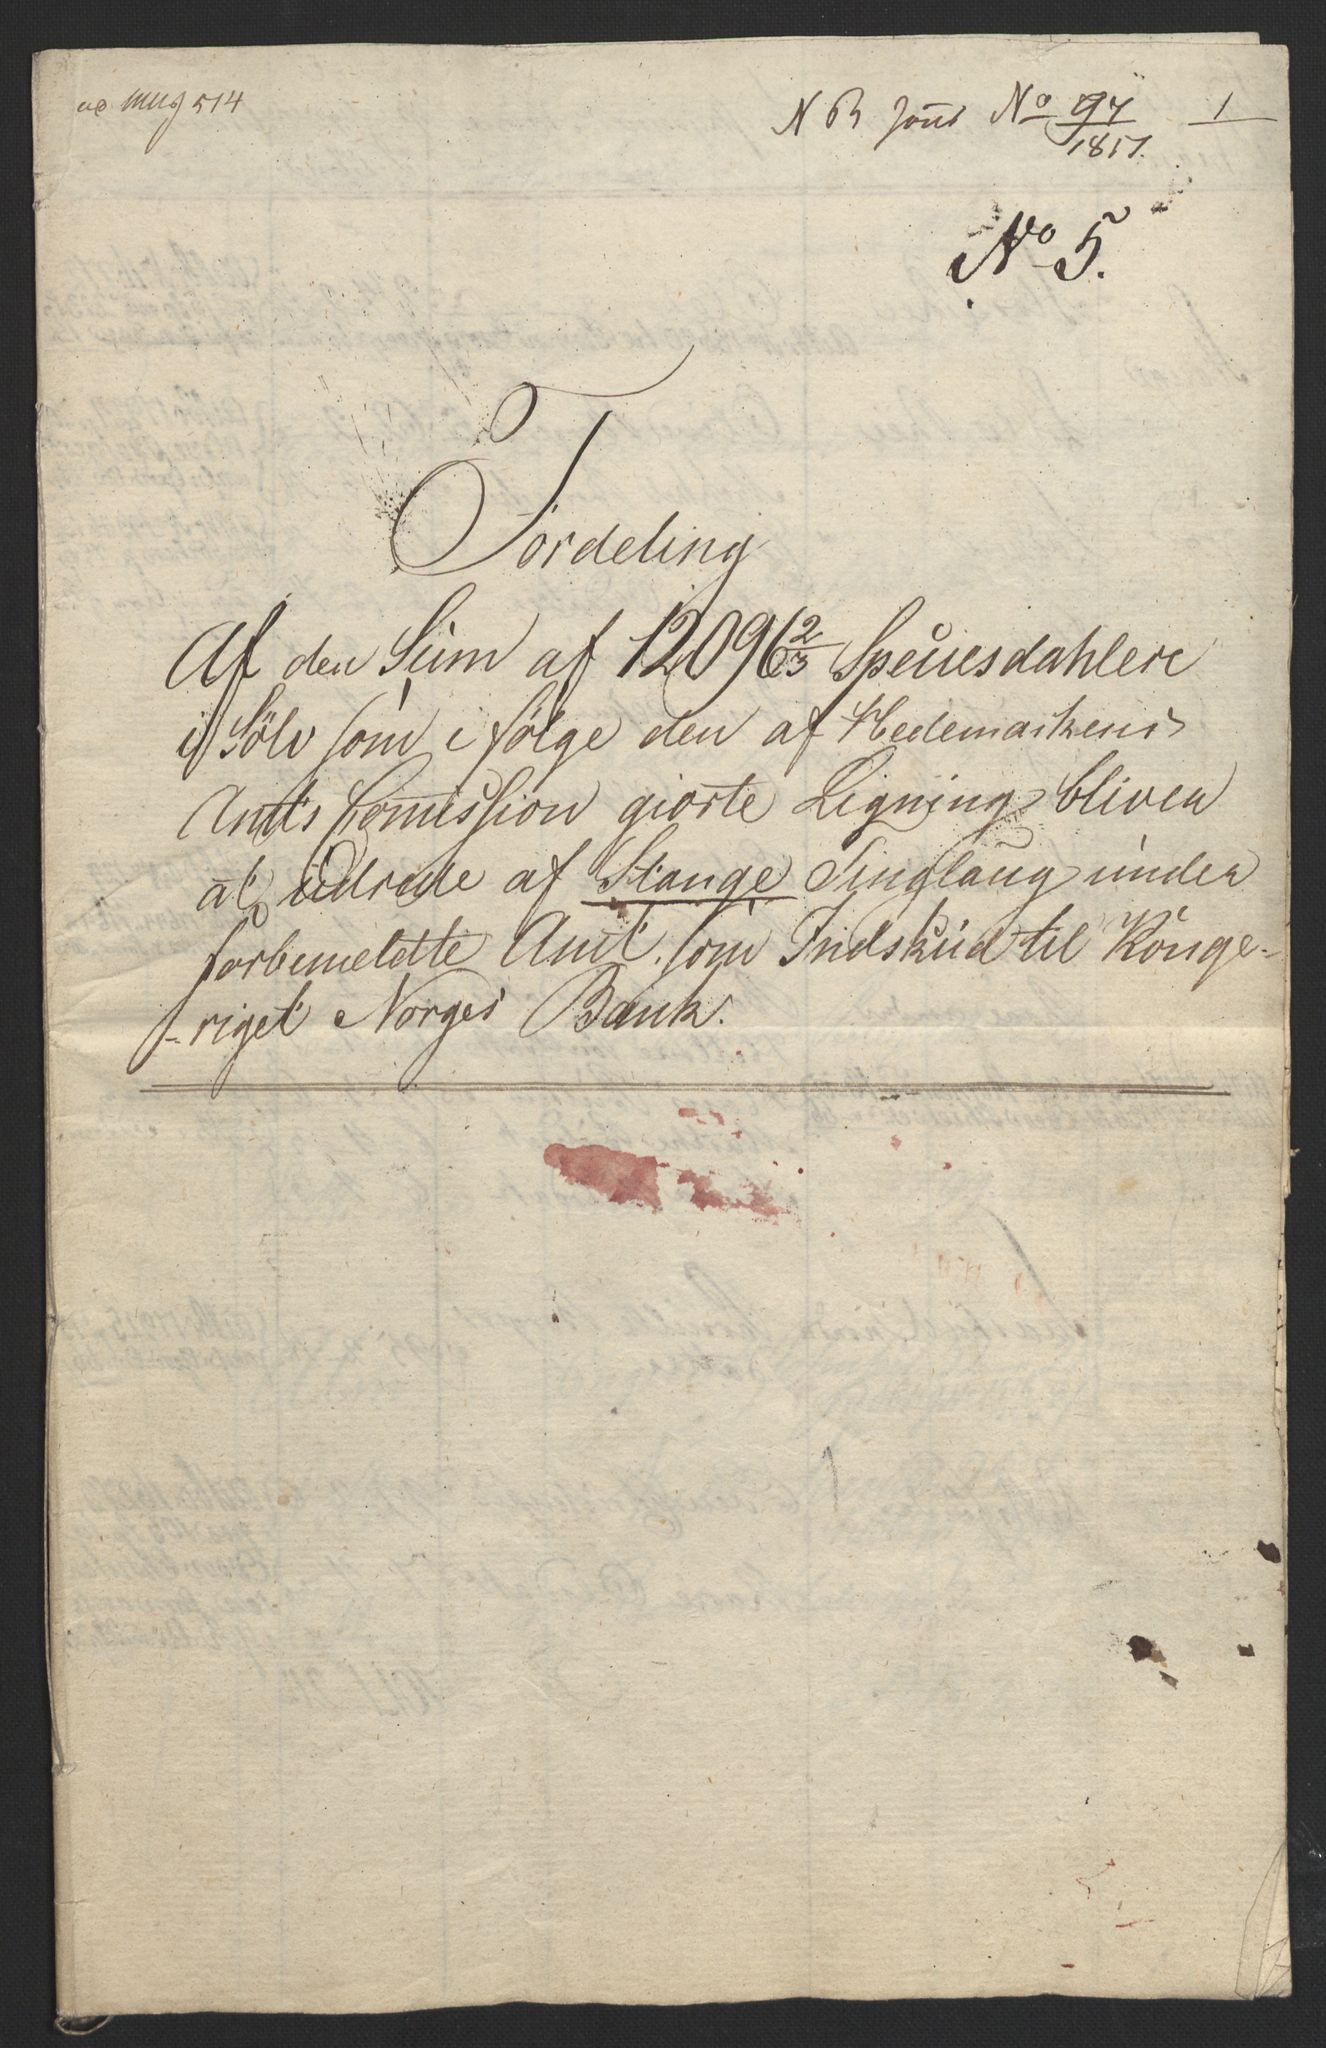 N B Jour No 97/1817. 1
No 5.
Fordeling
Af den Sum af 12096 2/3 Speciesdahlere
i Sölv som i følge den af Hedemarkens
Amts Comission giorte Ligning bliver
at udrede af Stange Tinglaug under
forbemeldte Amt, som Indskud til Konge-
-riget Norges Bank.